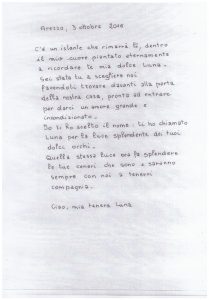 Arezzo, 3 ottobre 2016
C'è un istante che rimarrà lì, dentro
il mio cuore piantato eternamente
a ricordare te mia dolce Luna.
Sei stata tu a scegliere noi
facendoti trovare davanti alla porta
della nostra casa, pronta ad entrare
per darci un amore grande e
incondizionato.
Io ti ho scelto il nome: ti ho chiamato
Luna per la luce splendente dei tuoi
dolci occhi.
Quella stessa luce ora fa splendere
le tue ceneri che sono e saranno
sempre con noi a tenerci
compagnia.
Ciao, mia tenera Luna